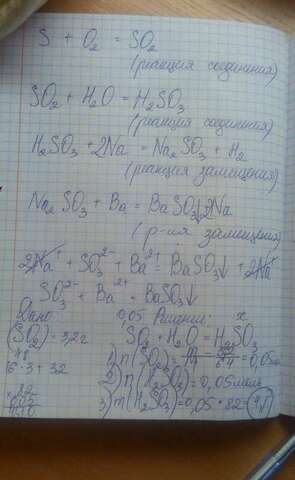 S + O₂ = SO₂
(реакция соединения)
SO₂ + H₂O = H₂SO₃
(реакция соединения)
H₂SO₃ + 2Na = Na₂SO₃ + H₂
(реакция замещения)
Na₂SO₃ + Ba = BaSO₃↓ 2Na
(р-ия замещения)
2Na⁺ + SO₃²⁻ + Ba²⁺ = BaSO₃↓ + 2Na⁺
SO₃²⁻ + Ba²⁺ = BaSO₃↓
Дано
(SO₂) = 3,2г
16·3 + 32
82
0,05
Решение:
0,05 x
SO₂ + H₂O = H₂SO₃
1) n(SO₂) = = 0,05м
2) n(H₂SO₃) = 0,05моль
3) m(H₂SO₃) = 0,05 · 82 =